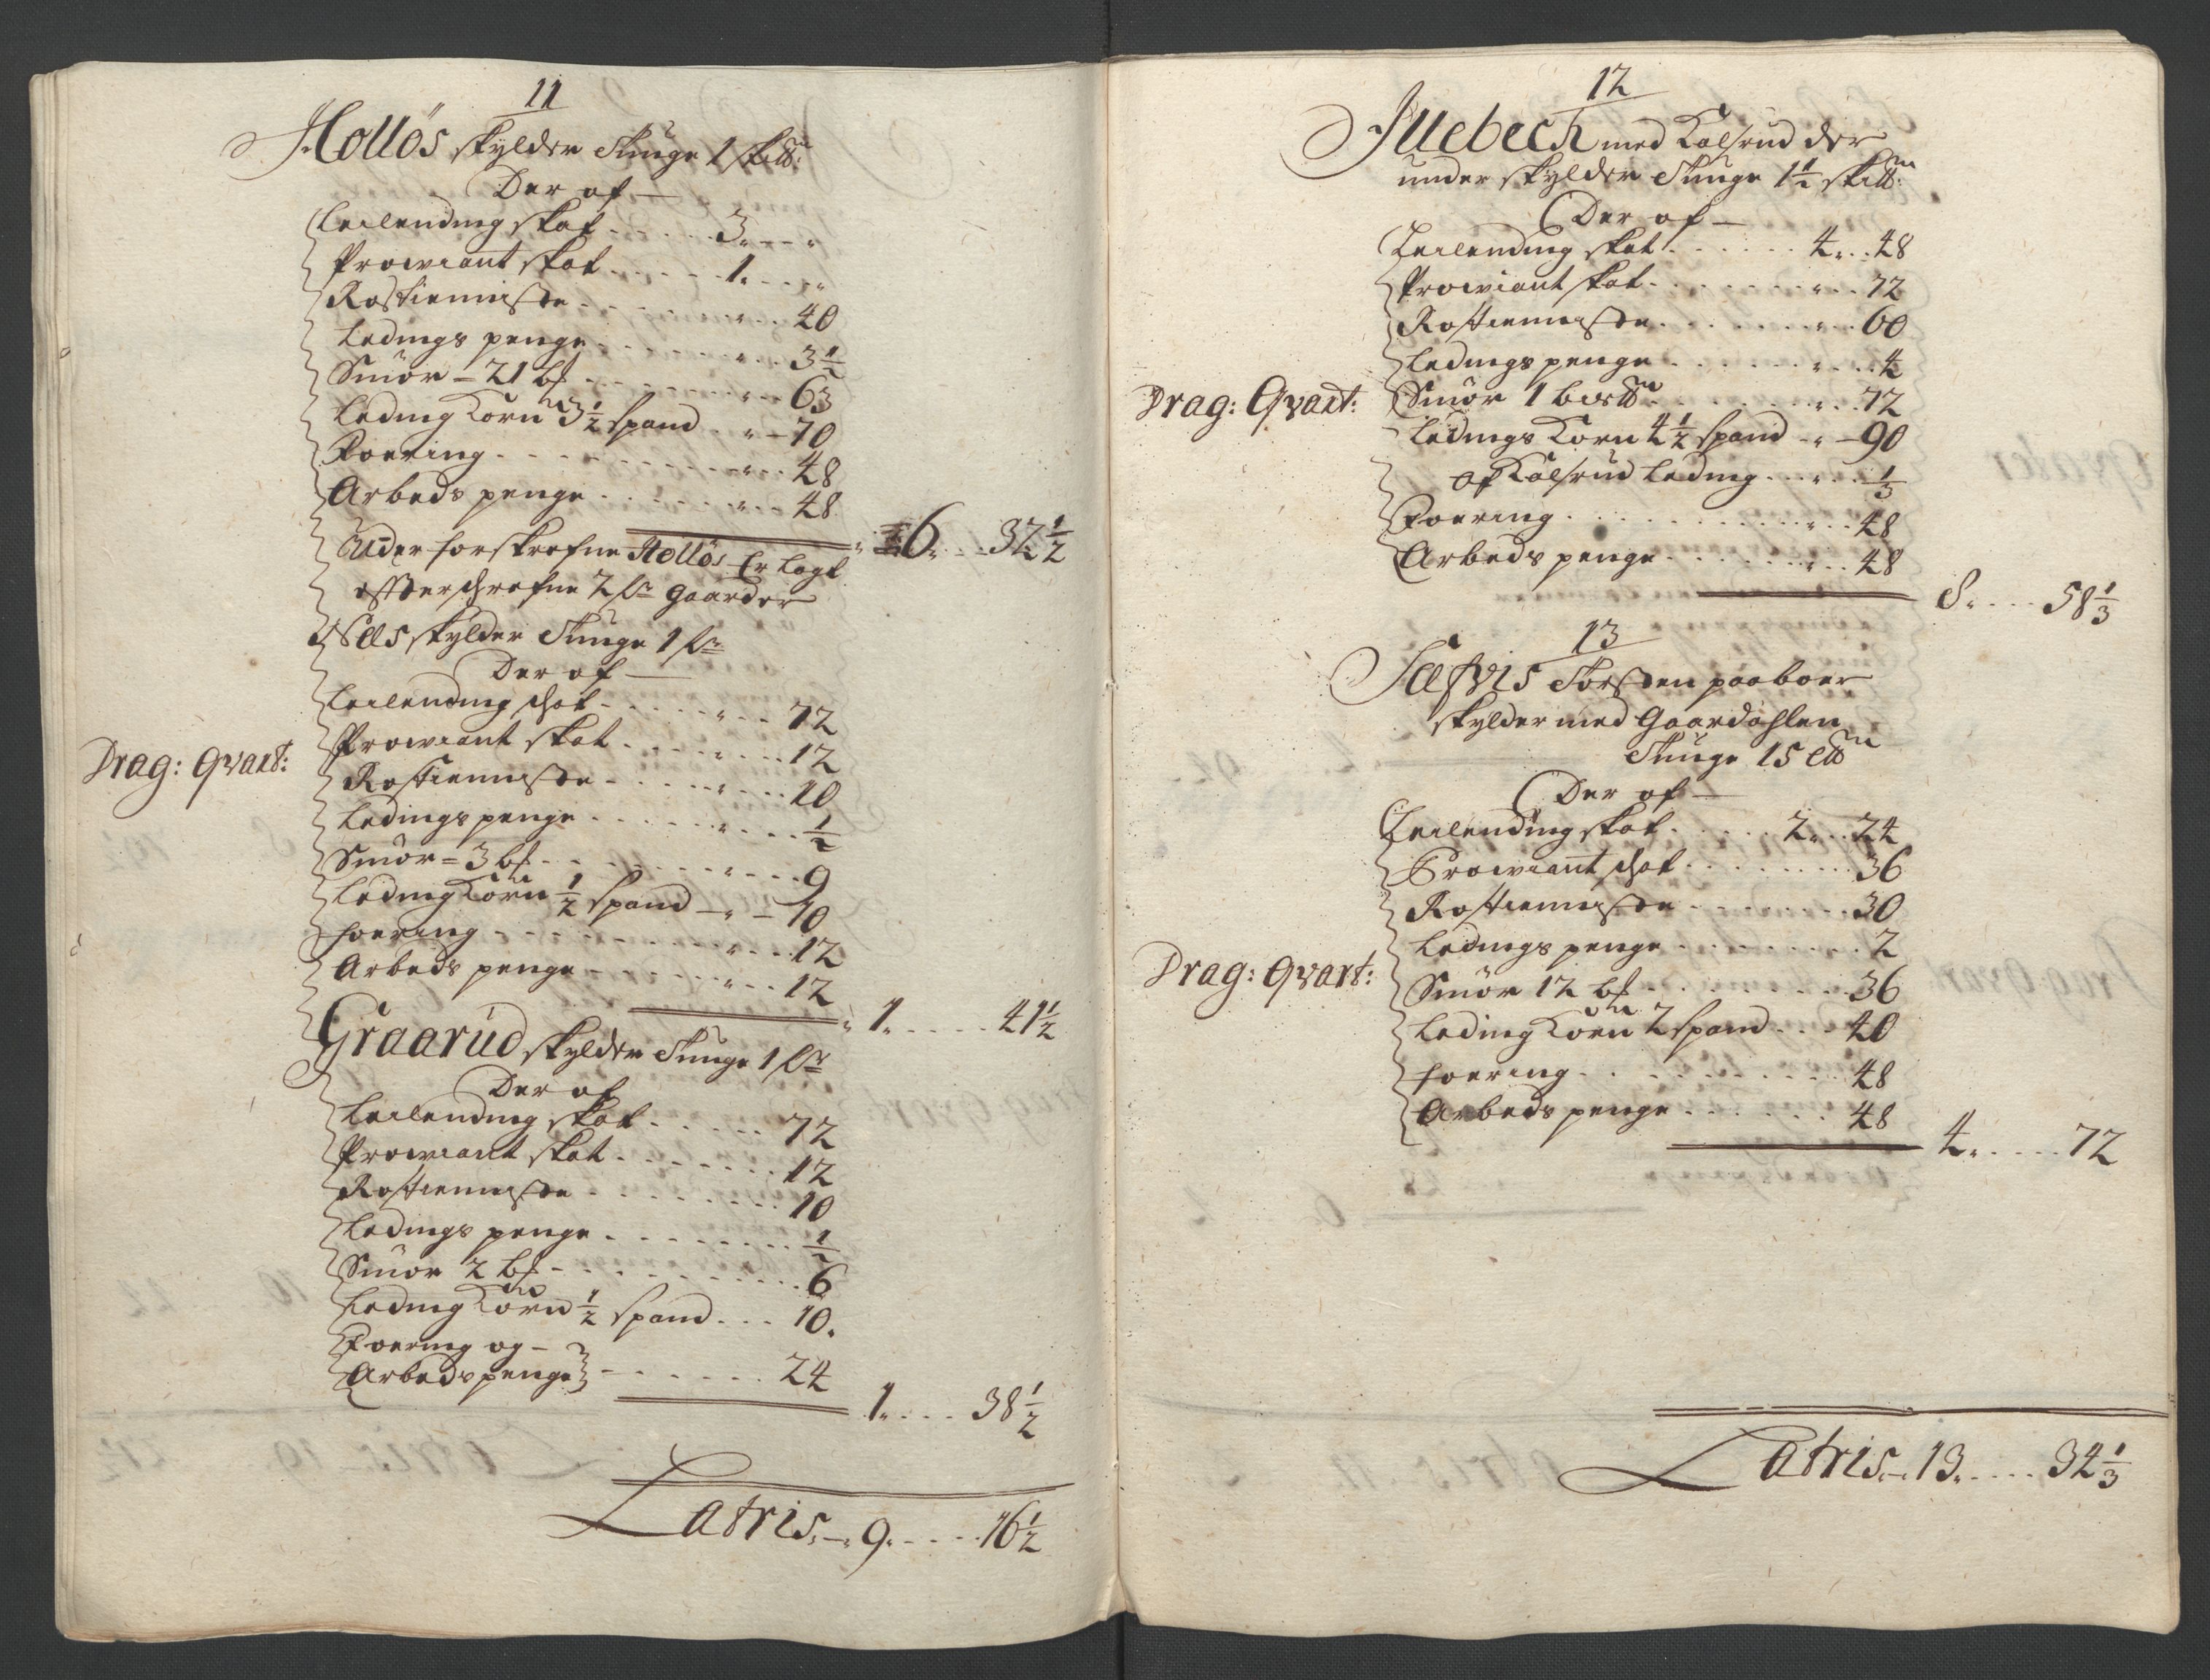 11
Hollös skylder Tunge 1 skill:
Der af
Leilending skat - - - 3 - - "
Prowiant skat - - - 1 - - "
Rostienniste - - - " - - 40
Ledings penge - - - " - - 3 1/2
Smör = 21 b# - - - " - - 63
Leding Korn 3 1/2 spand - " - 70
Foering - - - " - - 48
Arbeds penge - - - " - - 48
" 6 - - 32 1/2
Under forskrefne Hollös Er lagt
effterschrefne 2 sm Gaarder
Aas skylder Tunge 1 sm
Der af
Leilending skat - - - " - - 72
Drag: Qvart:
Prowiant skat - - - " - - 12
Rostienniste - - - " - - 10
Ledings penge - - - " - - 1/2
Smör = 3 b# - - - " - - 9
Leding Korn 1/2 spand - " - 10
foering - - - " - - 12
Arbeds penge - - - " - - 12
" 1 - - 41 1/2
Graarud skylder Tunge 1 sm
Der af
Leilending skat - - - 72
Prowiant skat - - - 12
Rostienniste - - - 10
Ledings penge - - - 1/2
Smör 2 b# - - - 6
Leding Korn 1/2 spand - - - 10
Foering og -
Arbeds penge } - - - 24
1 - - 38 1/2
Latris - 9 - - 16 1/2
12
Illebech med Kalsrud der
under skylder Tunge 1 1/2 skill:
Der af
Leilending skat - - - 4 - - 48
Prowiant skat - - - " - - 72
Rostienniste - - - " - - 60
Ledings penge - - - " - - 4
Drag: Qvart:
Smör 1 - - - " - - 72
Ledings Korn 4 1/2 spand - " - 90
Af Kalsrud Leding - - - " - - 1/3
Foering - - - " - - 48
Arbeds penge - - - " - - 48
8 - - 58 1/3
13
Torsten paaboer
skylder med Gaardahlen
Tunge 15
Der af
Leilending skat - - - 2 - - 24
Prowiant skat - - - 36
Rostienniste - - - 30
Ledings penge - - - 2
Drag: Qvart:
Smör 12 b# - - - 36
Leding Korn 2 spand - - - 40
foering - - - 48
Arbeds penge - - - 48
4 - - 72
Latris - 13 - - 34 1/3